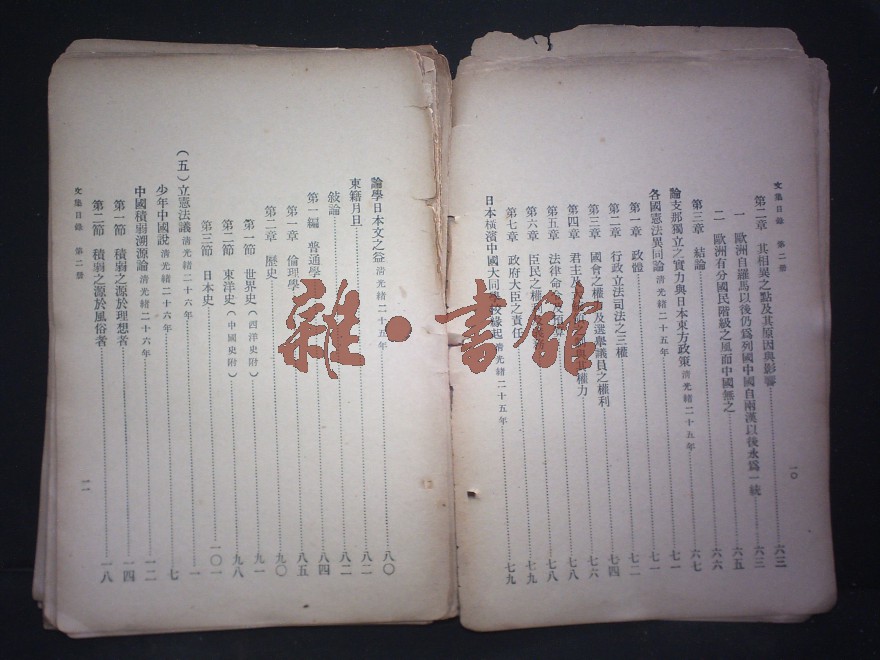 文集目錄 第二册
第二章 其相異之點及其原因與影響 六三
一 歐洲自羅馬以後仍爲列國中國自兩漢以後永爲一統 六三
二 歐洲有分國民階級之風而中國無之 六五
第三章 結論 六六
論支那獨立之實力與日本東方政策 清光緒二十五年 六七
各國憲法異同論 清光緒二十五年 七一
第一章 政體 七一
第二章 行政立法司法之三權 七二
第三章 國會之權 及選舉議員之權利 七四
第四章 君主及 權力 七六
第五章 法律命 七八
第六章 臣民之權 七八
第七章 政府大臣之責任 七九
日本橫濱中國大同 校緣起 清光緒二十五年 七九
一〇
論學日本文之益 清光緒二十五年 八〇
東籍月旦 八二
敍論 八二
第一編 普通學 八四
第一章 倫理學 八五
第二章 歷史 九〇
第一節 世界史(西洋史附) 九一
第二節 東洋史(中國史附) 九八
第三節 日本史 一〇一
(五)立憲法議 清光緒二十六年 一
少年中國說 清光緒二十六年 七
中國積弱溯源論 清光緒二十六年 一二
第一節 積弱之源於理想者 一四
第二節 積弱之源於風俗者 一八
文集目錄 第二册
一一
雜·書館